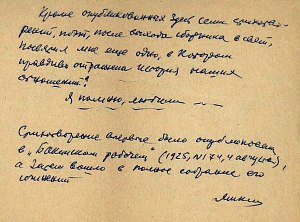 Кроме опубликованных здесь семи стихотво-
рений, поэт, после выхода сборника в свет,
посвятил мне еще одно, в котором
правдиво отражена история наших
отношений:
Я помню, любимая
Стихотворение впервые было опубликовано
в „Бакинском рабочем" (1925, N 174, 4 августа),
а затем вошло в полное собрание его
сочинений